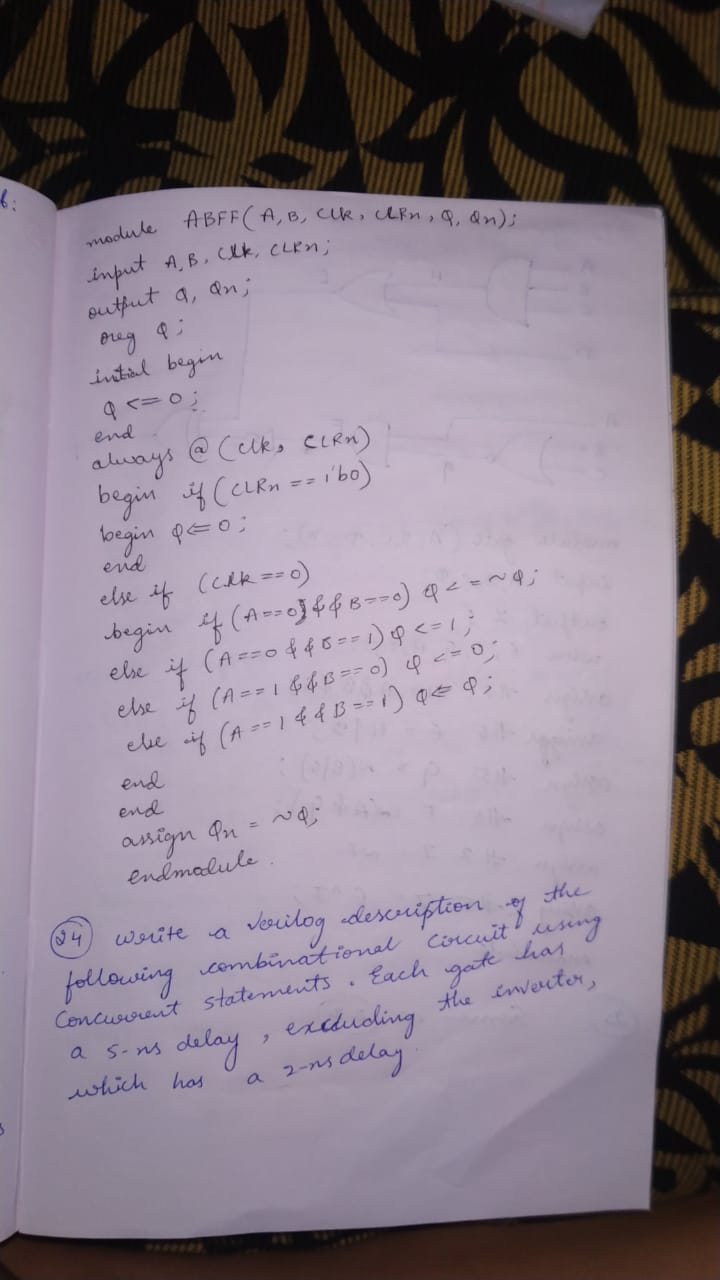 module ABFF(A, B, Clk, CLRn, Q, Qn);
input A, B, Clk, CLRn;
output Q, Qn;
reg Q;
initial begin
Q <= 0;
end
always @ (Clk, CLRn)
begin if (CLRn == 1'b0)
begin Q <= 0;
end
else if (Clk == 0)
begin if (A==0 && B==0) Q <= ~Q;
else if (A==0 && B==1) Q <= 1;
else if (A==1 && B==0) Q <= 0;
else if (A==1 && B==1) Q <= Q;
end
end
assign Qn = ~Q;
endmodule.
24 Write a Verilog description of the
following combinational circuit using
concurrent statements. Each gate has
a 5-ns delay, excluding the inverter,
which has a 2-ns delay.